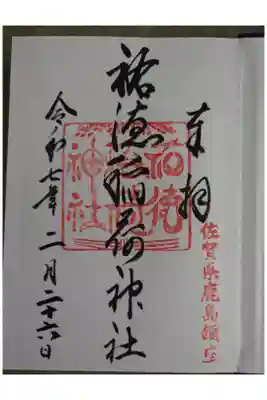 奉拝
佐賀県鹿島鎮座
祐徳稲荷神社
祐徳
稲荷
神社
令和七年二月二十六日